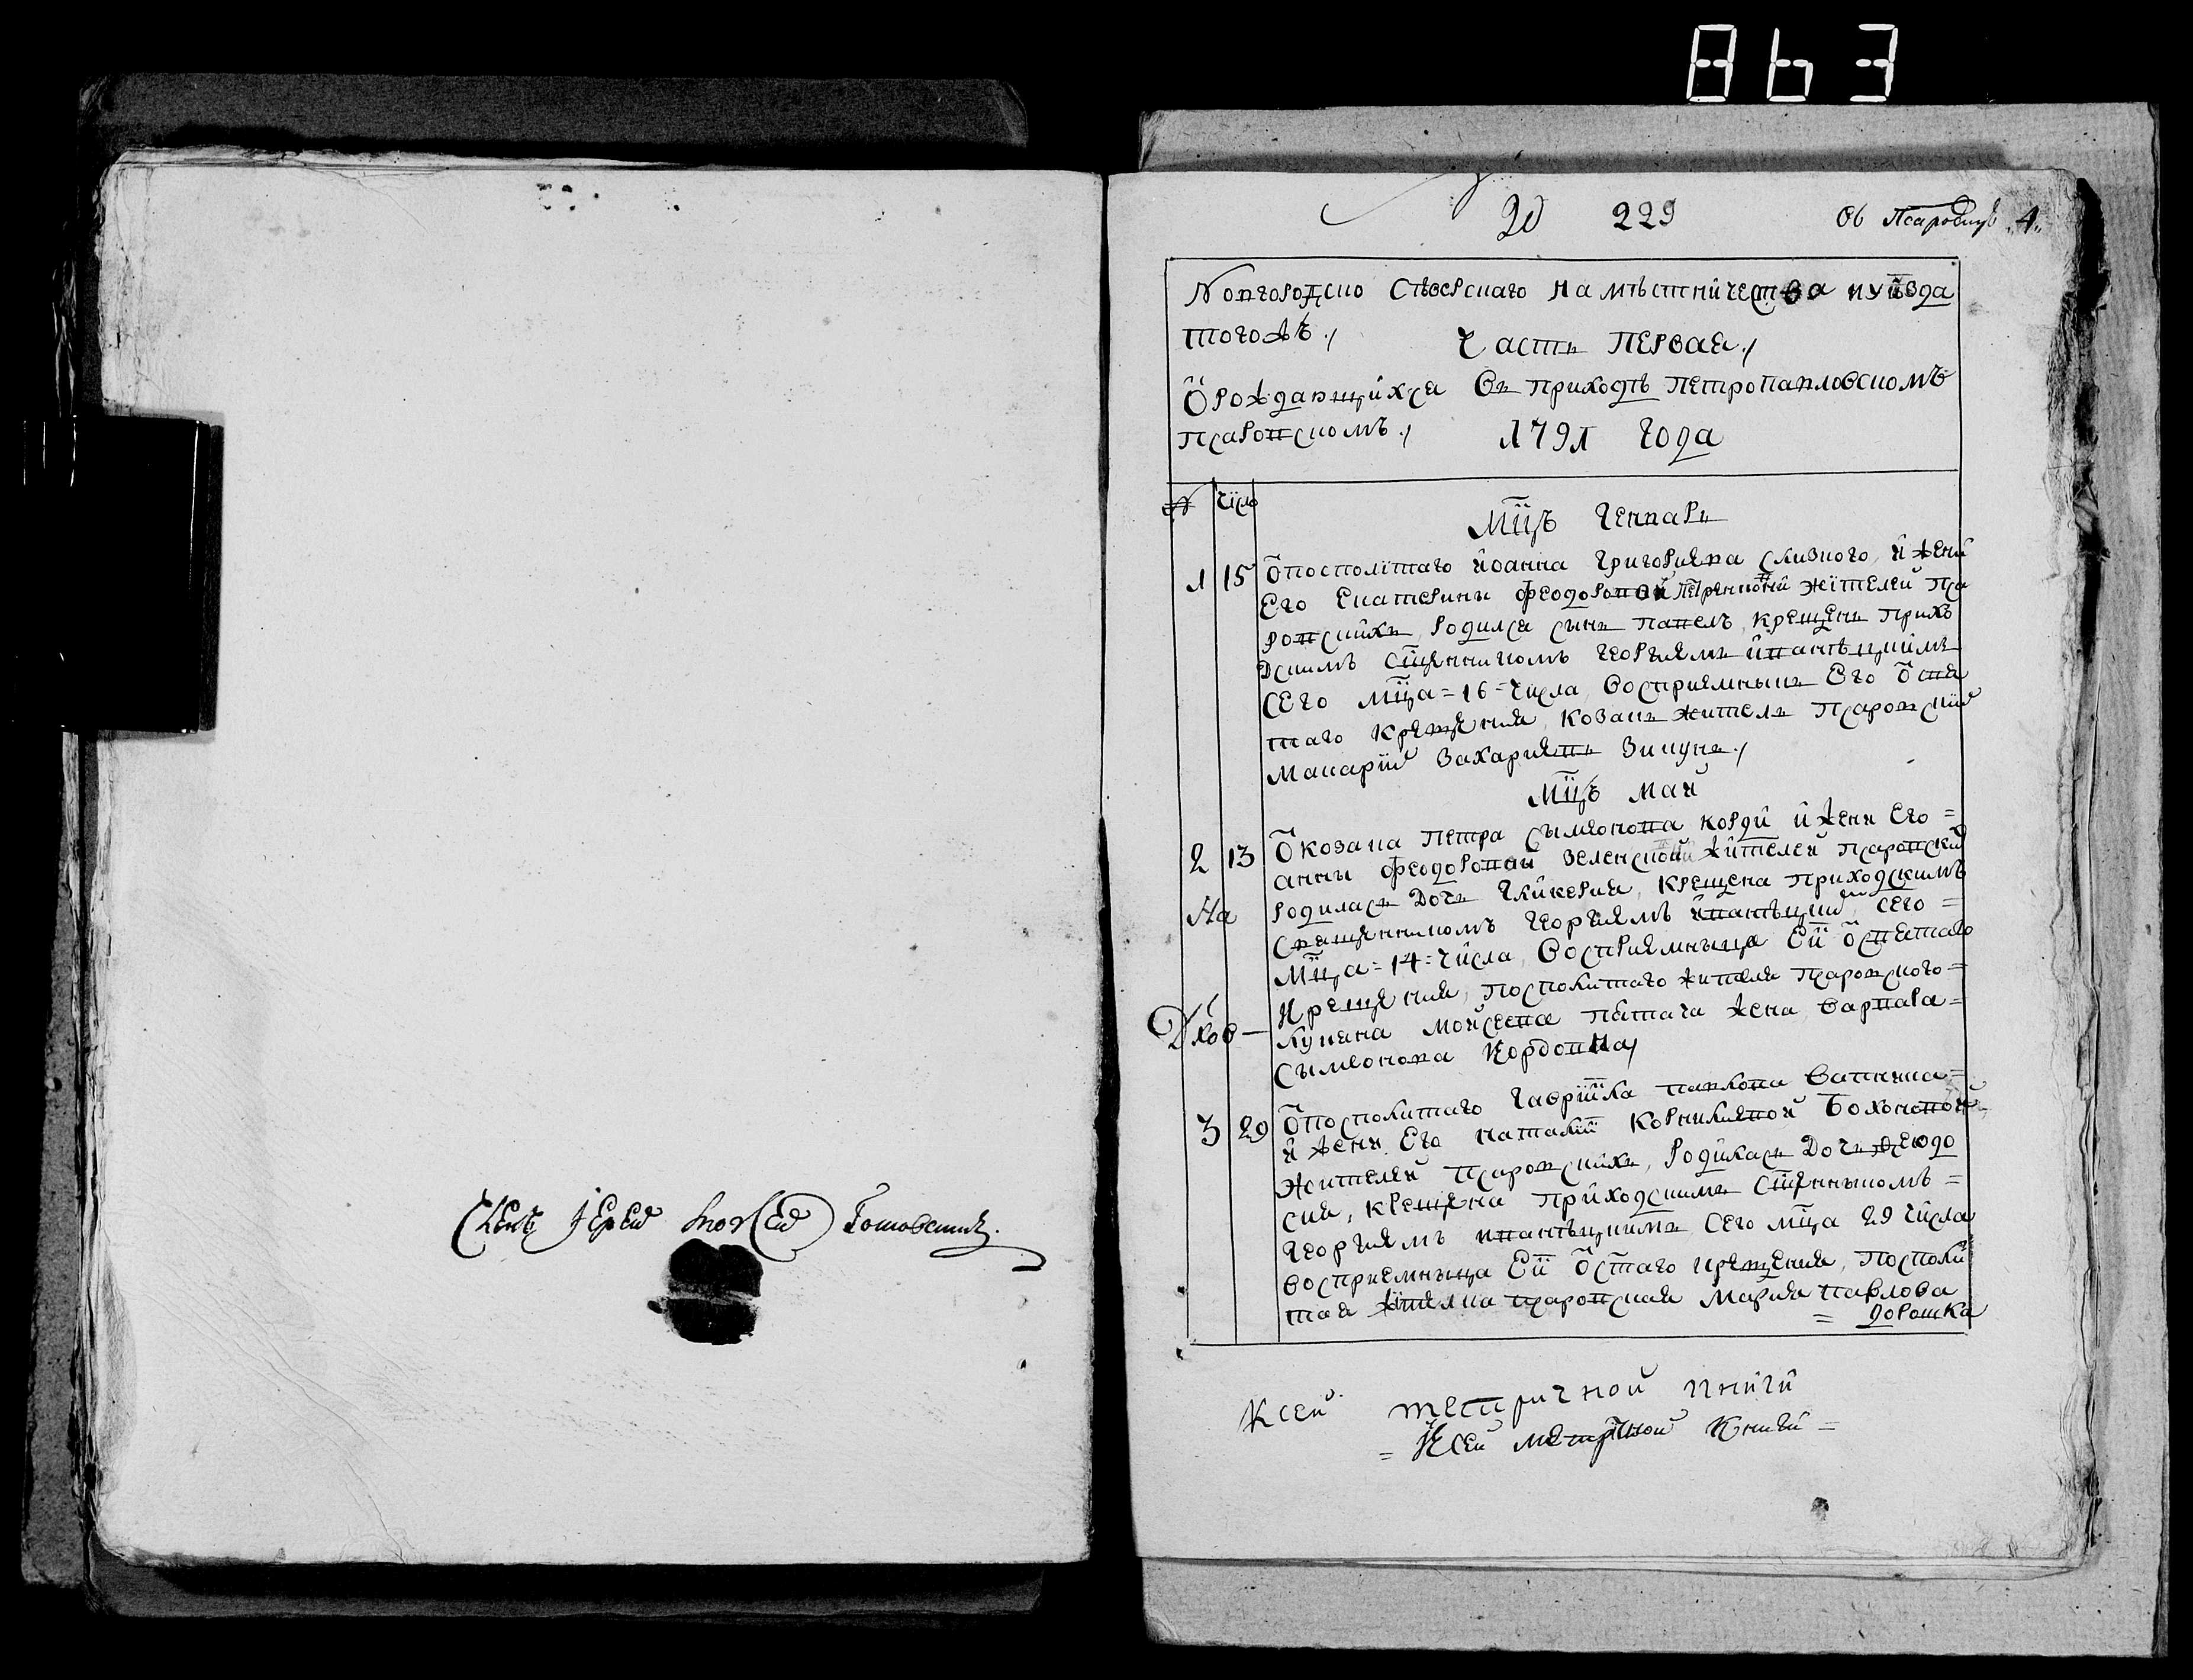 863
20 229 Въ Псаровцѣ 4
Новгородско Сѣверскаго намѣстничества и уѣзда
тогожъ ./
Часть Первая ./
Ѿ рождающихся въ приходѣ Петропавловскомъ
псаровскомъ ./ 1791 года
№ число
Мц҃ъ Генварь
1 15 Ѿ посполитаго Иоанна Григориева и жени
Его Екатерини Феодоровой Петренковни жителей пса
ровскихъ, родился сынъ Павелъ, крещенъ прихо
дскимъ сщ҃енникомъ Георгиемъ Иваницкимъ
сего мц҃а = 16 = числа, восприемникъ Его ѿ свя
таго крещения, козакъ житель псаровский
Макарий Захариевъ Зикунъ ./
Мц҃ъ Май
2 13 Ѿ козака Петра Сымеонова Корди и жени Его =
Анни Феодоровой Зеленской жителей псаровский
родилась дочь Гликерия, крещена приходскимъ
На
священникомъ Георгиемъ Иваницкий сего =
мц҃а = 14 = числа, восприемница Ей ѿ святаго
крещения, посполитаго жителя псаровского =
Дхов— Лукяна Мойсеева Пятага жена Варвара =
Сымеонова Кордовна ./
3 29 Ѿ посполитаго Гаврiила Павлова
и жени Его Наталiи Корнилиевой
жителей псаровскихъ, родилась дочь Феодо
сия, крещена приходскимъ сщ҃енникомъ =
Георгиемъ Иваницкимъ сего мц҃а 29 числа
восприемница Ей ѿ с҃таго крещения, посполи
тая жителка псаровская Мария Павлова
= Дорошка
К сей метричной книги
= К сей метричной книги =
Членъ Iерей